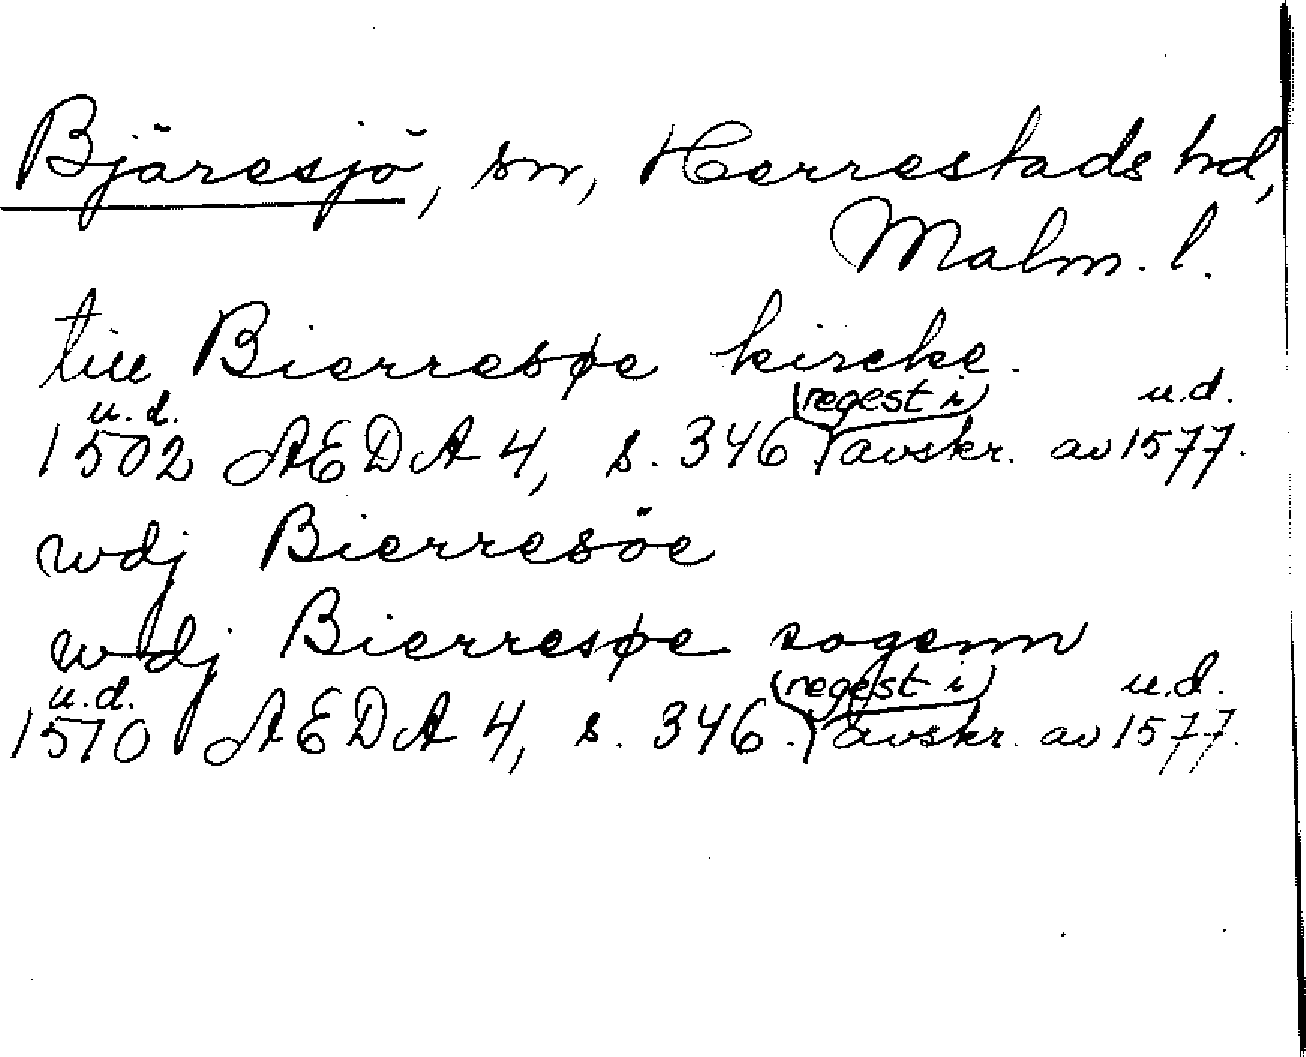 Bjäresjö, sn, Herrestads hd,
Malm. l.
till Bierresøe kircke.
1502 u.d. AEDA 4, s. 346 (regest i) avskr. av 1577 u.d.
wdj Bierresöe
wdj Bierresøe sogenn
1510 u.d. AEDA 4, s. 346. (regest i) avskr. av 1577 u.d.